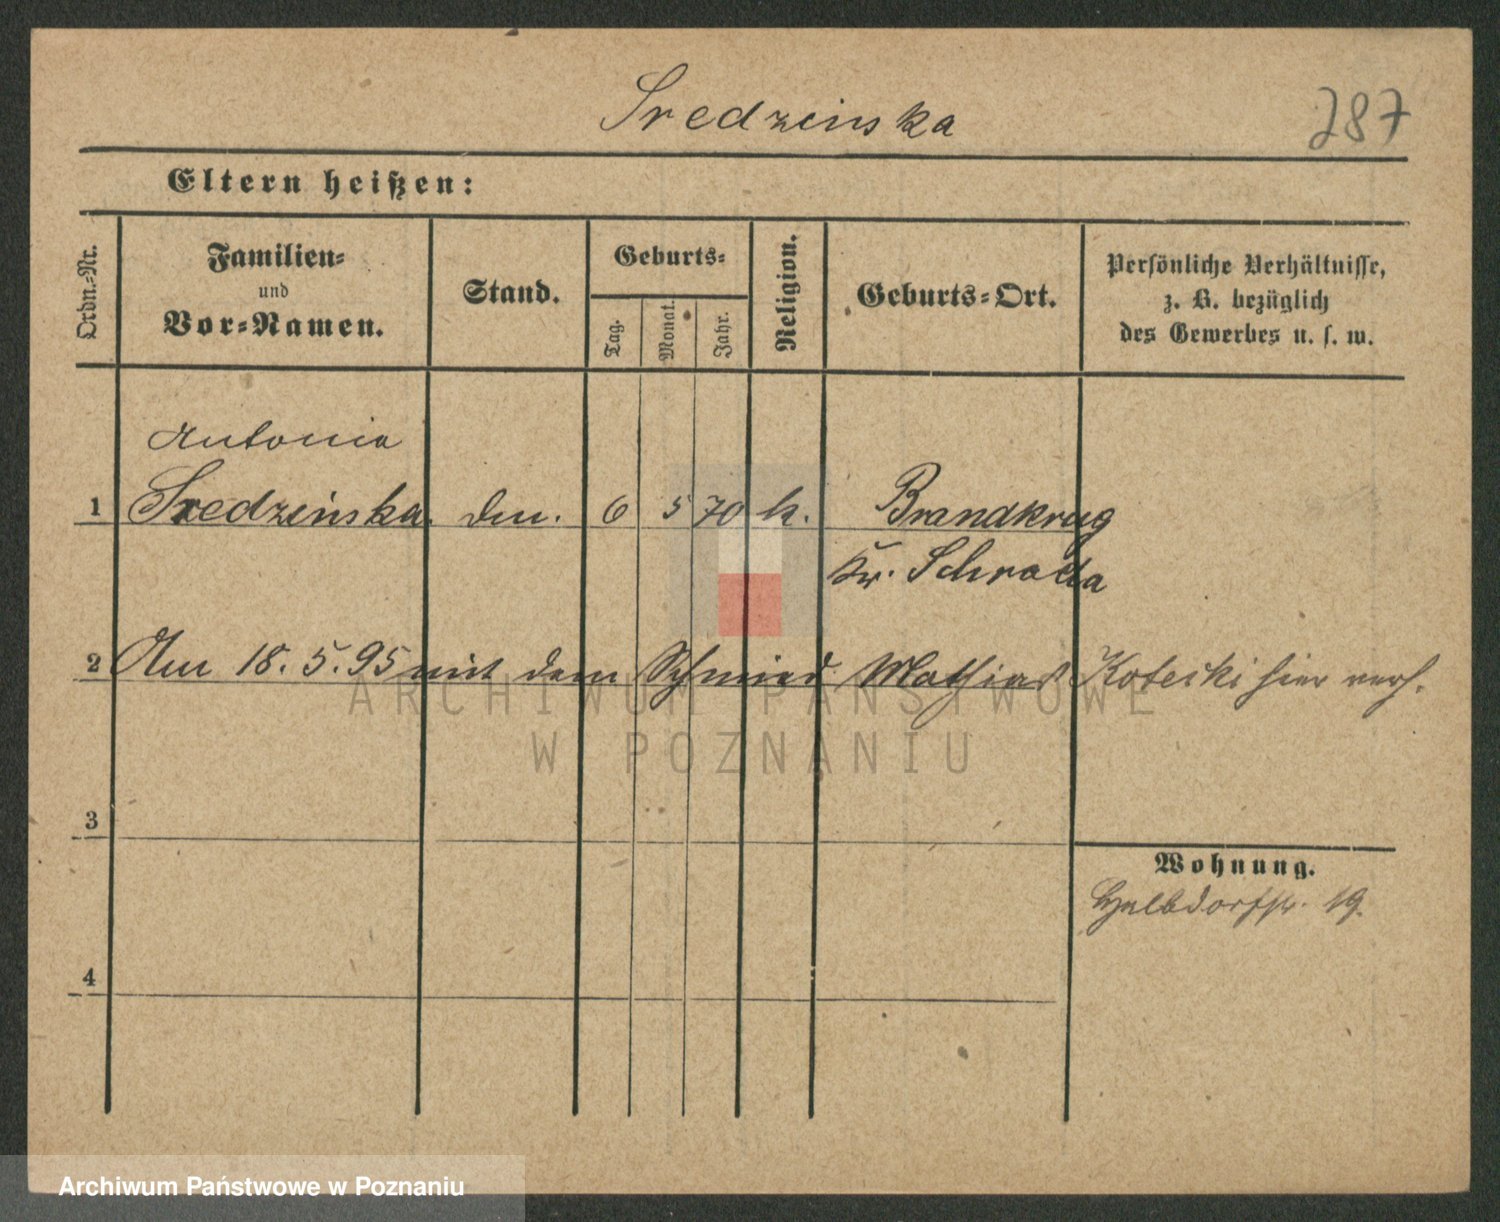 Sredzinska
287
Eltern heißen:
Ordn.-Nr.
Familien-
und
Vor-Namen.
Stand.
Geburts-
Tag.
Monat.
Jahr.
Religion.
Geburts-Ort.
Persönliche Verhältnisse,
z. B. bezüglich
des Gewerbes u. s. w.
Antonia
1 Sredzinska 6 5 70 k. Brandkrug
Kr. Schroda
2 Am 18. 5. 95 mit dem Schmied Mathias Kotecki hier verh.
ARCHIWUM PAŃSTWOWE
W POZNANIU
3
Wohnung.
Halbdorfstr. 19.
4
Archiwum Państwowe w Poznaniu